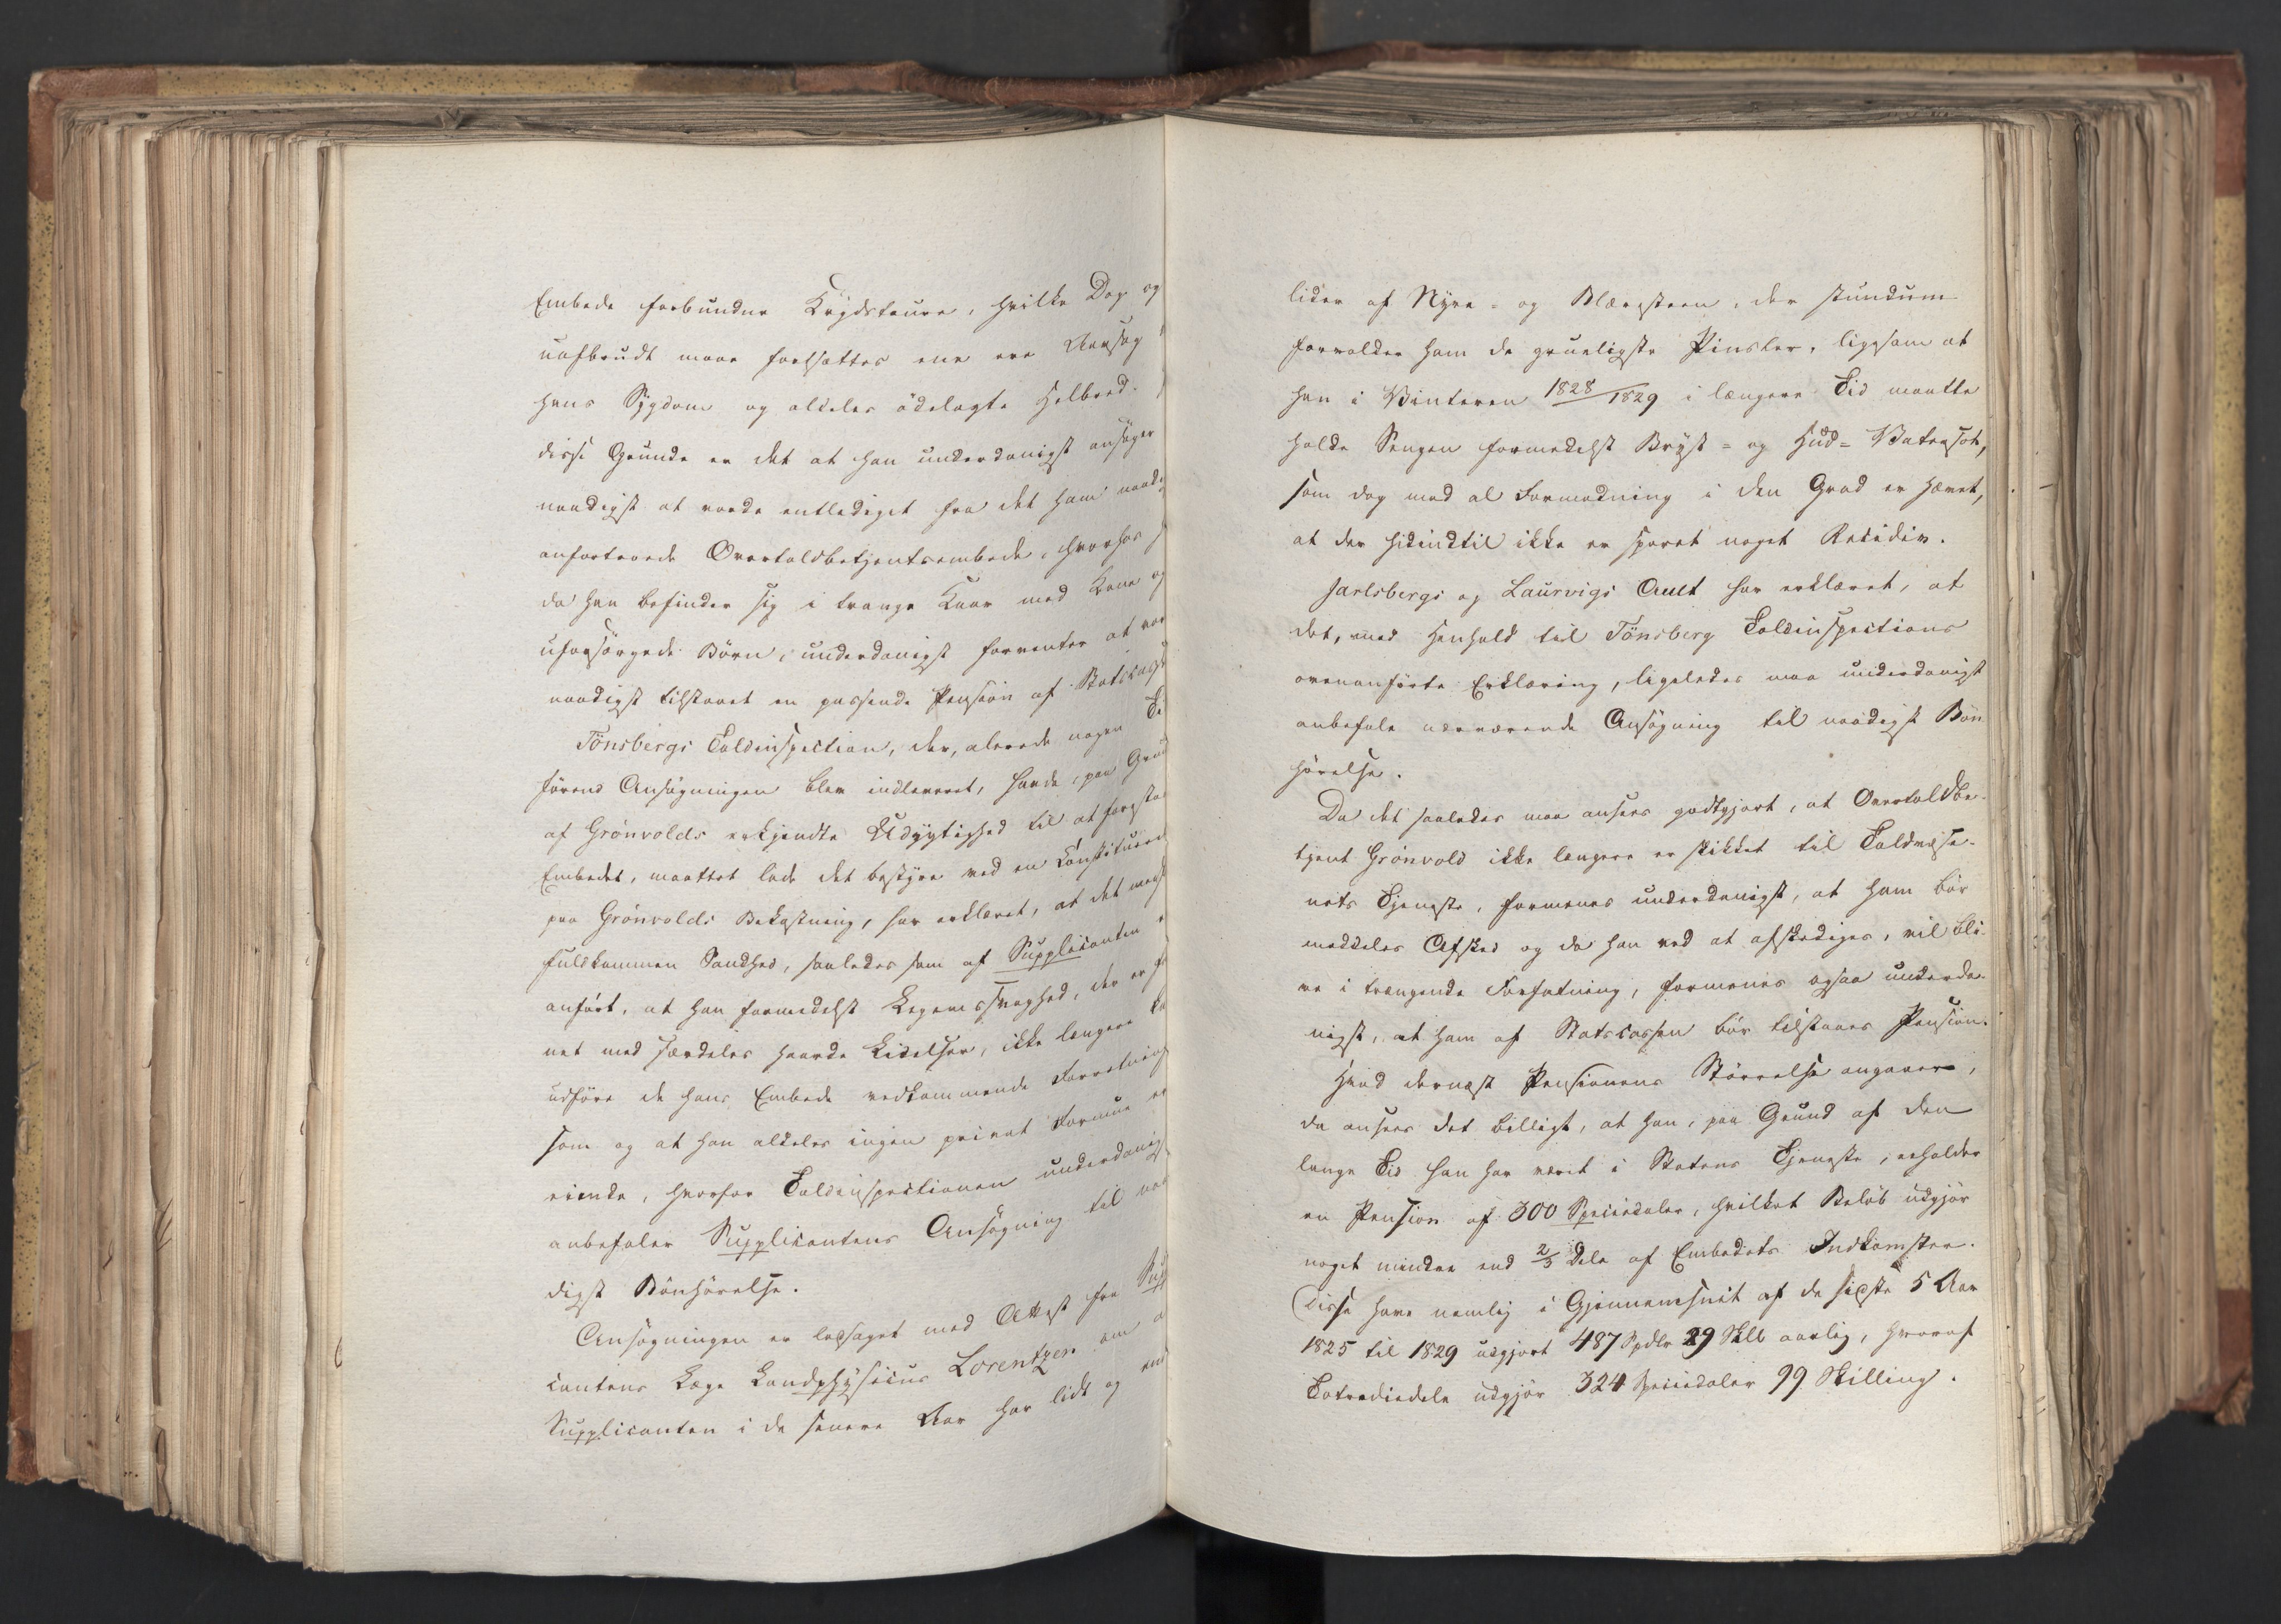 Embede forbundne Krydstoure, hvilke Dag og
uafbrudt maae fortsættes ene ere Aarsag
hans Sygdom og aldeles ödelagte Helbred.
disse Grunde er det at han underdanigst ansöger
naadigst at vorde entlediget fra det ham naadi
anfortroede Overtoldbetjentsembede, hvorhos
da han befinder sig i trange Kaar med Kone og
uforsörgede Börn, underdanigst forventer at vor
naadigst tilstaaet en passende Pension af Statscass
Tönsbergs Toldinspection, der, allerede nogen Ti
förend Ansögningen blev indleveret, havde, paa Grun
af Grönvolds erkjendte Udygtighed til at forestaa
Embedet, maattet lade det bestyre ved en Constitueret
paa Grönvolds Bekostning, har erklæret, at det med
fuldkommen Sandhed, saaledes som af Supplicanten
anfört, at han formedelst Legemssvaghed, der er
net med særdeles haarde Lidelser, ikke længere ka
udföre de hans Embede vedkommende Forretning
som og at han aldeles ingen privat Formue er
eiende, hvorfor Toldinspectionen underdanig
anbefaler Supplicantens Ansögning til naa
digst Bönhörelse.
Ansögningen er ledsaget med Attest fra Sup
cantens Læge Landphysicus Lorentzen om a
Supplicanten i de senere Aar har lidt og end
lider af Nyre- og Blæresteen, der stundum
forvolder ham de grueligste Pinsler, ligesom at
han i Vinteren 1828/1829 i længere Tid maatte
holde Sengen formedelst Bryst- og Hud-Vatersot,
som dog med al Formodning i den Grad er hævet,
at der hidindtil ikke er sporet noget Recidiv.
Jarlsbergs og Laurvigs Amt har erklæret, at
det, med Henhold til Tönsberg Toldinspections
ovenanförte Erklæring, ligeledes maa underdanigst
anbefale nærværende Ansögning til naadigst Bön-
hörelse.
Da det saaledes maa ansees godtgjort, at Overtoldbe-
tjent Grönvold ikke længere er skikket til Toldvæse-
nets Tjeneste, formenes underdanigst, at ham bör
meddeles Afsked og da han ved at afskediges, vil bli-
ve i trængende Forfatning, formenes ogsaa underda-
nigst, at ham af Statscassen bör tilstaaes Pension.
Hvad dernæst Pensionens Störrelse angaaer,
da ansees det billigt, at han, paa Grund af den
lange Tid han har været i Statens Tjeneste, erholder
en Pension af 300 Speciedaler, hvilket Belöb udgjör
noget mindre end 2/3 Dele af Embedets Indkomster.
Disse have nemlig i Gjennemsnit af de sidste 5 Aar
1825 til 1829 udgjort 487 Spdlr 29 Skll aarlig, hvoraf
Totrediedele udgjör 324 Speciedaler 99 Skilling.